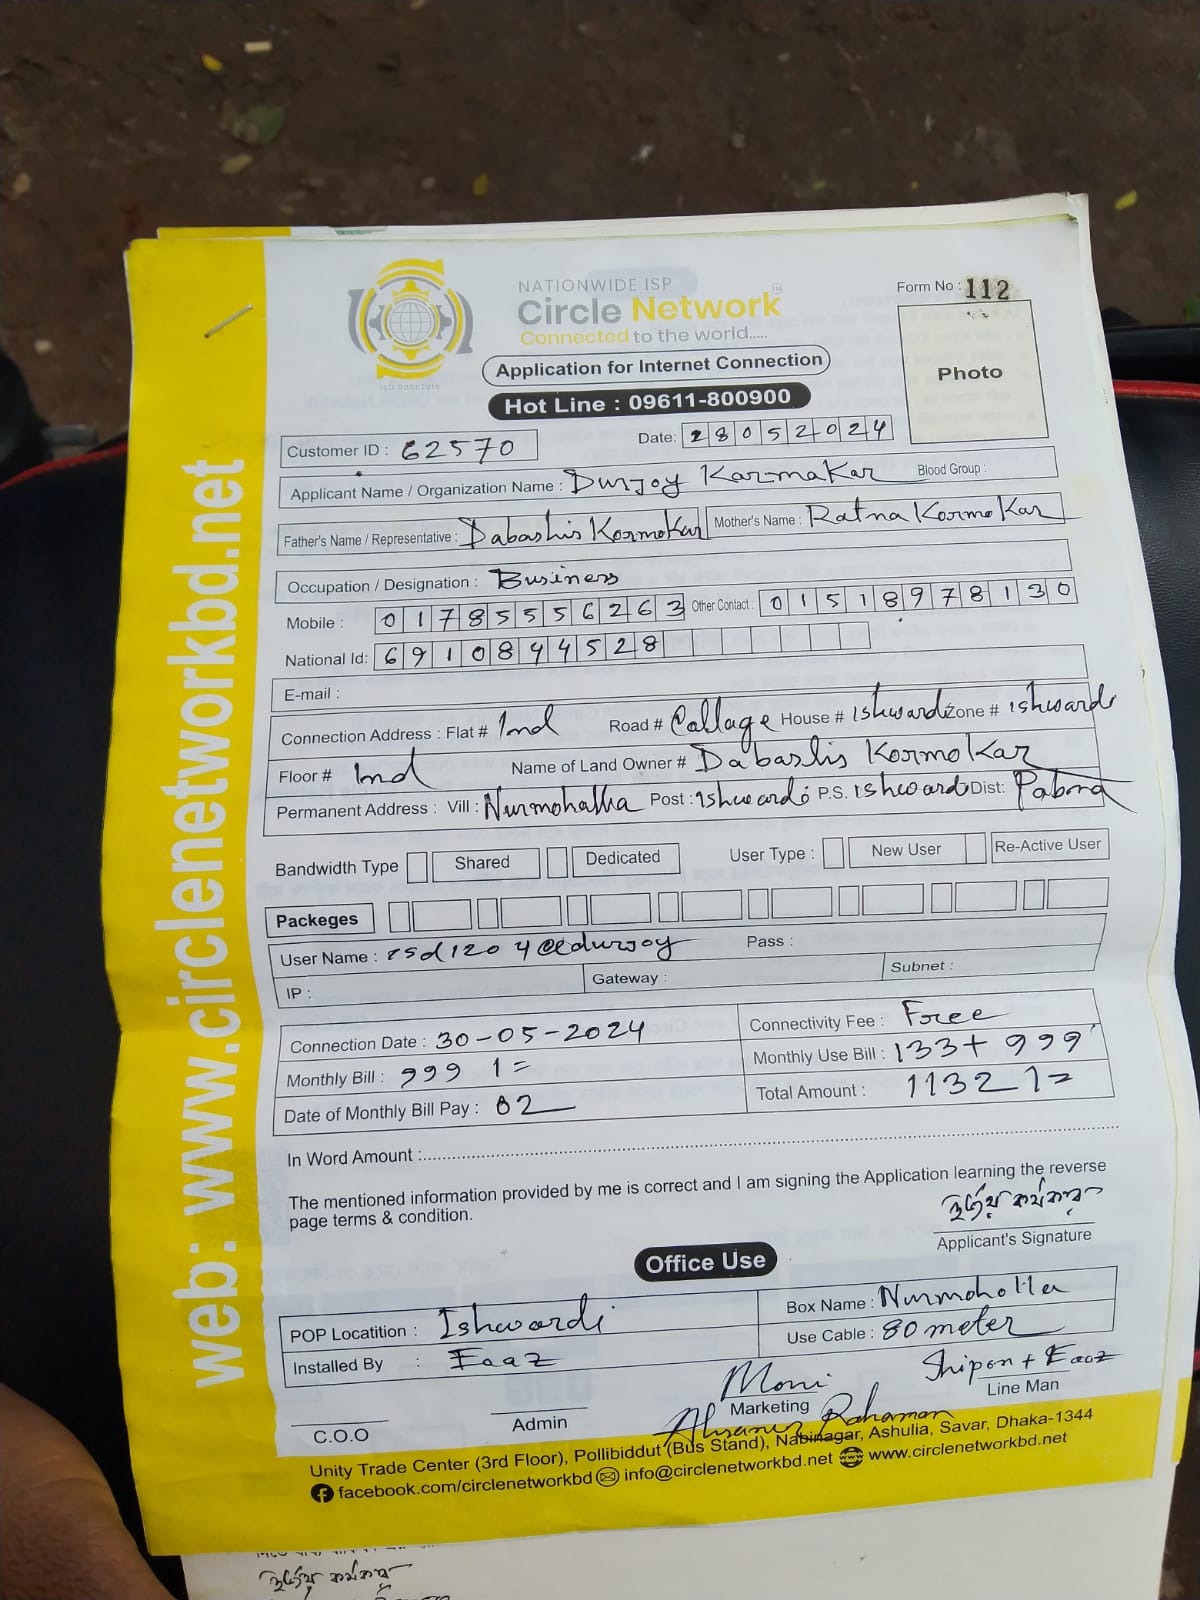 NATIONWIDE ISP
Circle Network
Connected to the world.....
ISO 9001:2015
Form No : 112
Photo
Application for Internet Connection
Hot Line : 09611-800900
Customer ID : 62570 Date: 28052024
Applicant Name / Organization Name : Durjoy Karmakar Blood Group :
Father's Name / Representative : Dabashis Kormokar Mother's Name : Ratna Kormokar
Occupation / Designation : Business
Mobile : 01785556263 Other Contact : 01518978130
National Id: 6910844528
E-mail :
Connection Address : Flat # Ind Road # Callage House # ishwardi Zone # ishwardi
Floor # Ind Name of Land Owner # Dabashis Kormokar
Permanent Address : Vill : Nurmohalla Post : ishwardi P.S. ishwardi Dist: Pabna
Bandwidth Type Shared Dedicated User Type : New User Re-Active User
Packeges
User Name : Pass :
IP : Gateway : Subnet :
Connection Date : 30-05-2024 Connectivity Fee : Free
Monthly Bill : 999 1= Monthly Use Bill : 133+ 999
Date of Monthly Bill Pay : 02 Total Amount : 1132 1=
In Word Amount :
The mentioned information provided by me is correct and I am signing the Application learning the reverse
page terms & condition.
দুর্জয় কর্মকার
Applicant's Signature
Office Use
POP Locatition : Ishwardi Box Name : Nurmoholla
Installed By : Eaaz Use Cable : 80 meter
Moni Shipon + Eaaz
C.O.O Admin Marketing Line Man
Rahaman
Unity Trade Center (3rd Floor), Pollibiddut (Bus Stand), Nabinagar, Ashulia, Savar, Dhaka-1344
facebook.com/circlenetworkbd info@circlenetworkbd.net www.circlenetworkbd.net
web: www.circlenetworkbd.net
দুর্জয় কর্মকার